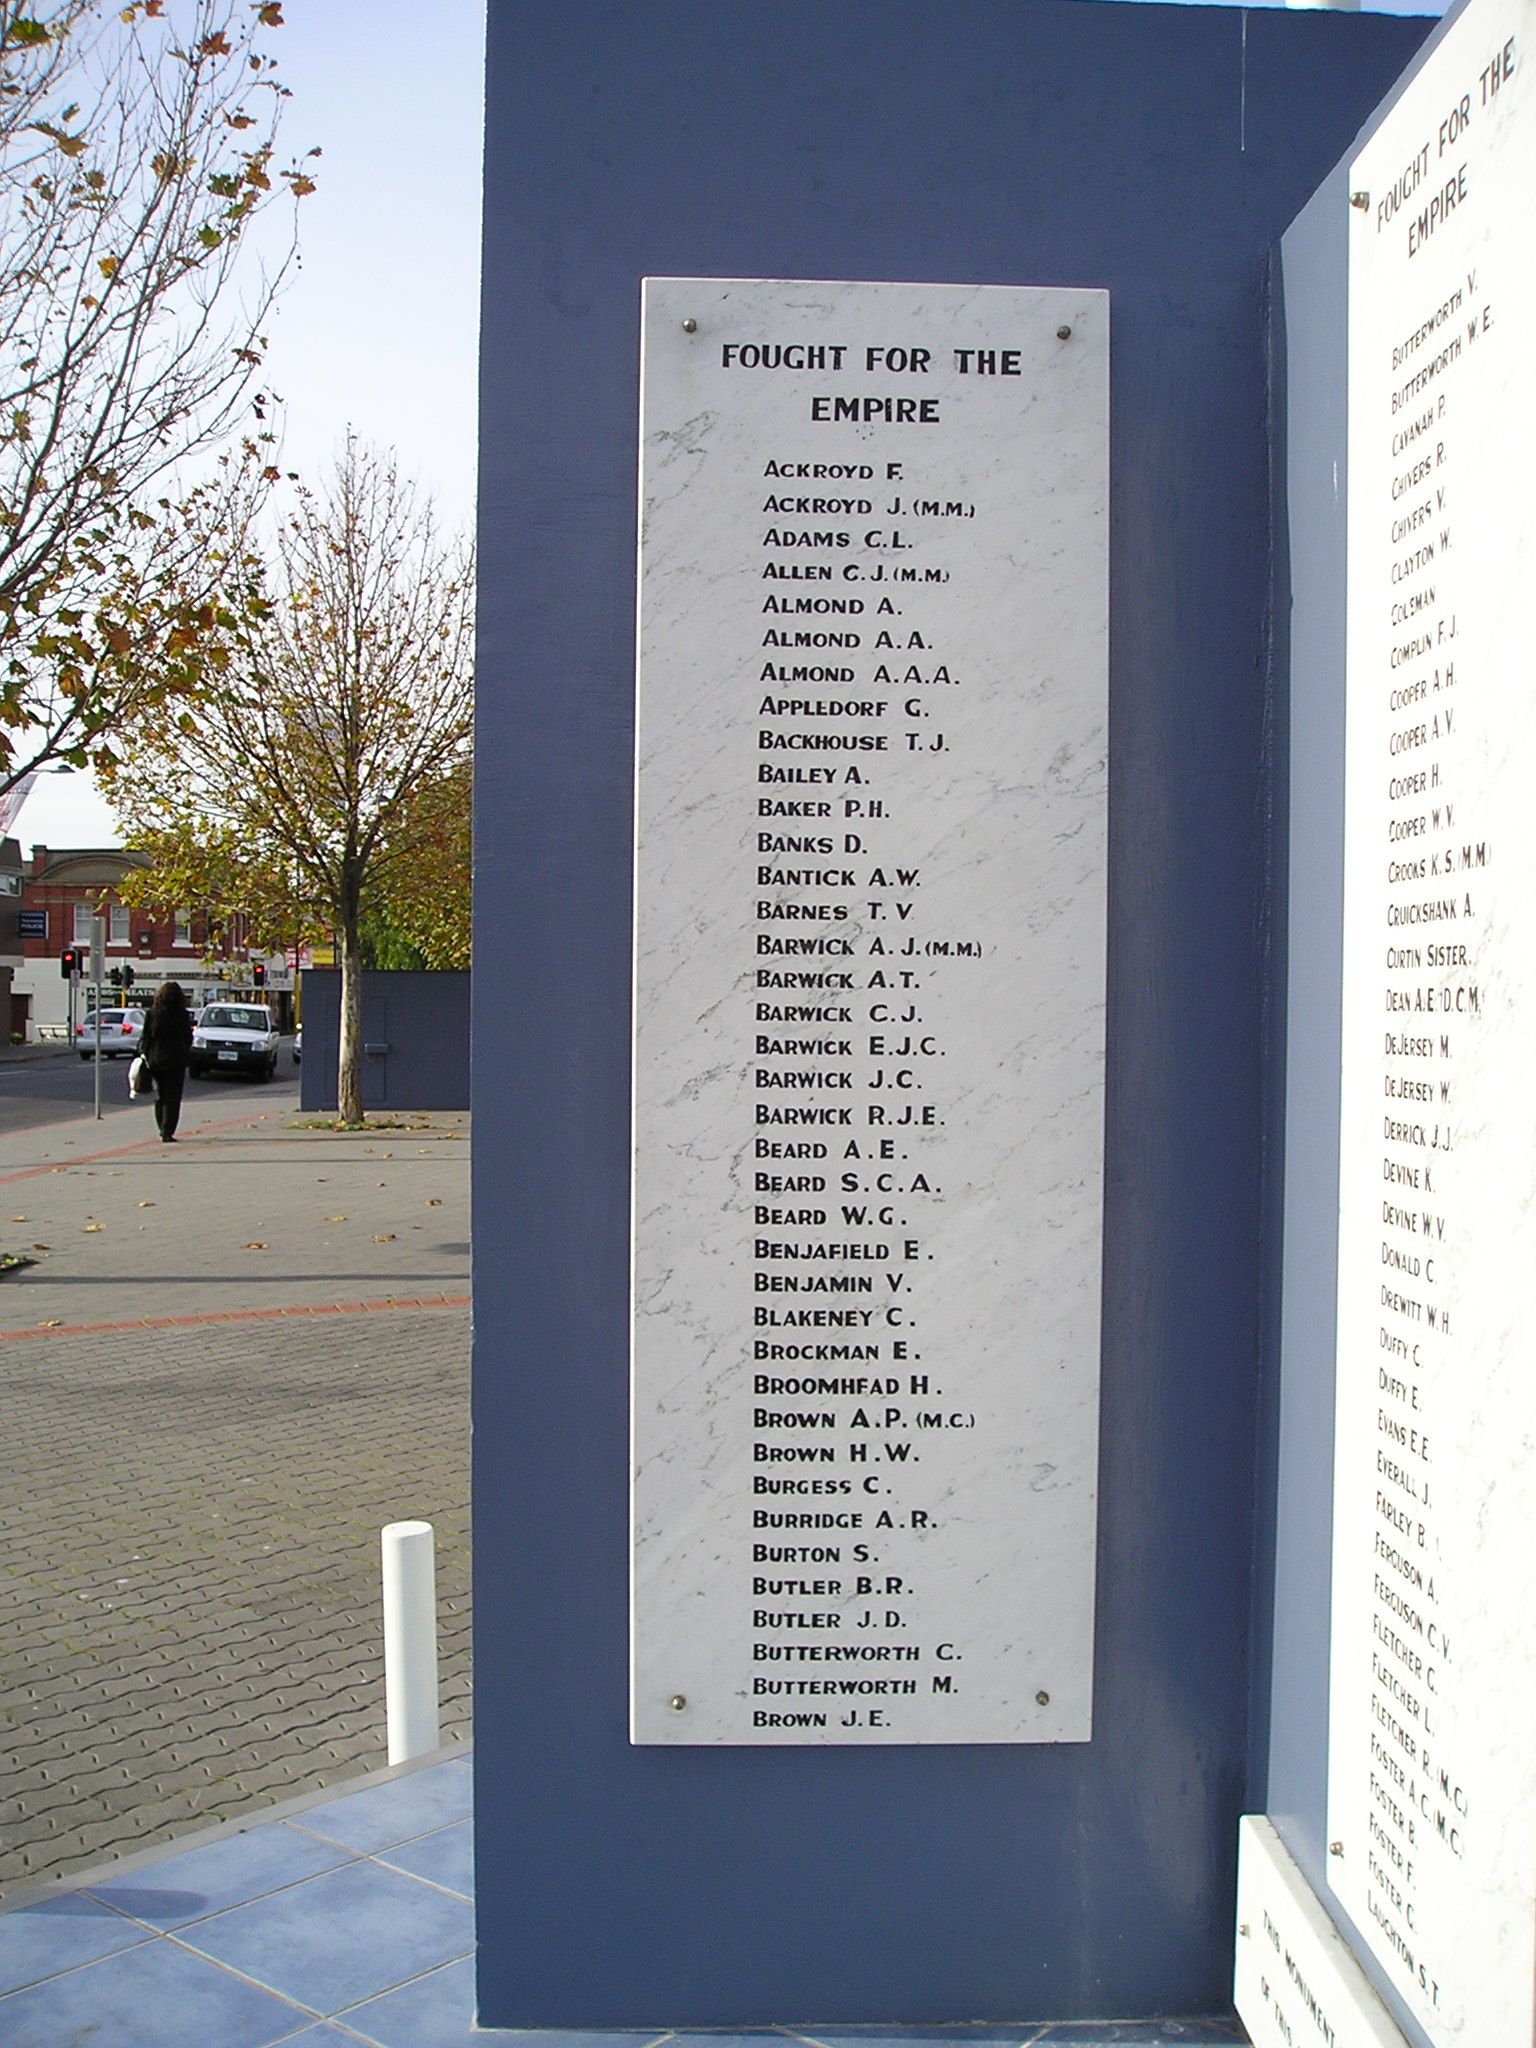 FOUGHT FOR THE
EMPIRE
ACKROYD F.
ACKROYD J. (M.M.)
ADAMS C.L.
ALLEN C.J. (M.M.)
ALMOND A.
ALMOND A.A.
ALMOND A.A.A.
APPLEDORF G.
BACKHOUSE T.J.
BAILEY A.
BAKER P.H.
BANKS D.
BANTICK A.W.
BARNES T.V
BARWICK A.J. (M.M.)
BARWICK A.T.
BARWICK C.J.
BARWICK E.J.C.
BARWICK J.C.
BARWICK R.J.E.
BEARD A.E.
BEARD S.C.A.
BEARD W.G.
BENJAFIELD E.
BENJAMIN V.
BLAKENEY C.
BROCKMAN E.
BROOMHEAD H.
BROWN A.P. (M.C.)
BROWN H.W.
BURGESS C.
BURRIDGE A.R.
BURTON S.
BUTLER B.R.
BUTLER J.D.
BUTTERWORTH C.
BUTTERWORTH M.
BROWN J.E.
FOUGHT FOR THE
EMPIRE
BUTTERWORTH V.
BUTTERWORTH W.E.
CAVANAH P.
CHIVERS R.
CHIVERS V.
CLAYTON W.
COLEMAN
COMPLIN F.J.
COOPER A.H.
COOPER A.V.
COOPER H.
COOPER W.V.
CROOKS K.S. (M.M.)
CRUICKSHANK A.
CURTIN SISTER.
DEAN A.E. D.C.M.
DEJERSEY M.
DEJERSEY W.
DERRICK J.J.
DEVINE K.
DEVINE W.V.
DONALD C.
DREWITT W.H.
DUFFY C.
DUFFY E.
EVANS E.E.
EVERALL J.
FARLEY B.
FERGUSON A.
FERGUSON C.V.
FLETCHER G.
FLETCHER L.
FLETCHER R. (M.C.)
FOSTER A.C. (M.C.)
FOSTER B.
FOSTER F.
FOSTER G.
LAUGHTON S.T.
THIS MONUMENT
OF THIS
POLICE
MEATS